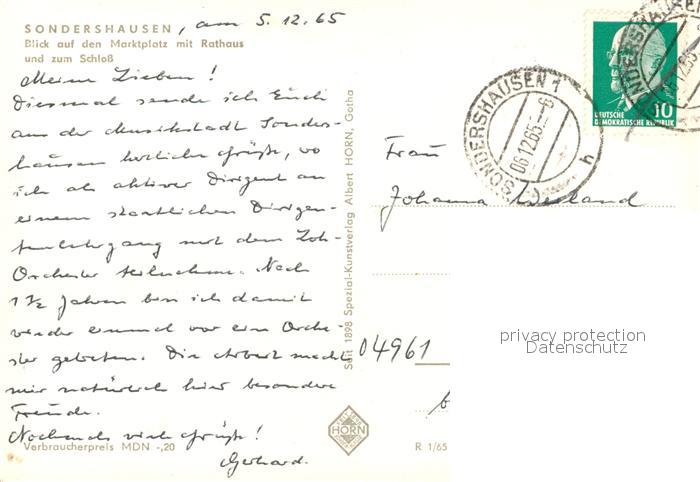 SONDERSHAUSEN, am 5.12.65
Blick auf den Marktplatz mit Rathaus
und zum Schloß
Meine Lieben!
Diesmal sende ich Euch
aus der Musikstadt Sonders-
hausen herzliche Grüße, wo
ich als aktiver Dirigent an
einem staatlichen Dirigen-
tenlehrgang mit dem Loh-
Orchester teilnehme. Nach
1 ½ Jahren bin ich damit
wieder einmal vor ein Orche-
ster gebeten. Die Arbeit macht
mir natürlich hier besondere
Freude.
Nochmals viele Grüße!
Gerhard.
Verbraucherpreis MDN -,20
Seit 1898 Spezial-Kunstverlag Albert HORN, Gotha
HORN
R 1/65
SONDERSHAUSEN 1
06.12.65
h
SONDERSHAUSEN
06.12.65
10
DEUTSCHE
DEMOKRATISCHE REPUBLIK
Frau
Johanna Weiland
04961
privacy protection
Datenschutz